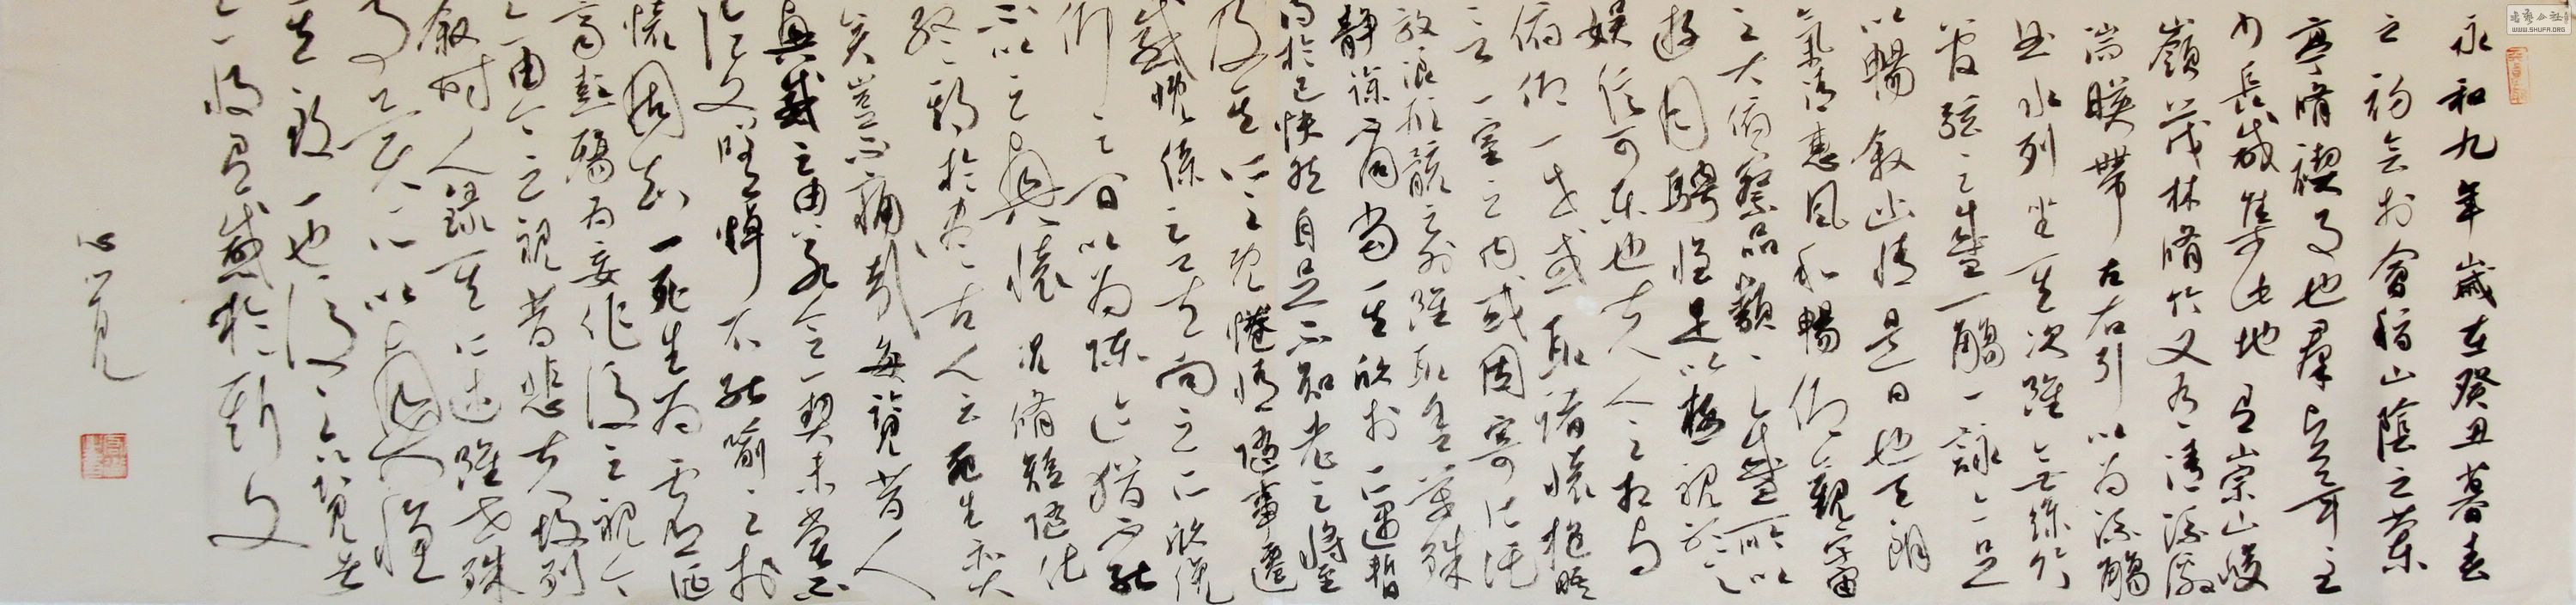 永和九年歲在癸丑暮春
之初會於會稽山陰之蘭
亭脩禊事也群賢畢至
少長咸集此地有崇山峻
嶺茂林脩竹又有清流激
湍暎帶左右引以為流觴
曲水列坐其次雖無絲竹
管弦之盛一觴一詠亦足
以暢敘幽情是日也天朗
氣清惠風和暢仰觀宇宙
之大俯察品類之盛所以
遊目騁懷足以極視聽之
娛信可樂也夫人之相與
俯仰一世或取諸懷抱晤
言一室之內或因寄所託
放浪形骸之外雖取舍萬殊
靜躁不同當其欣於所遇暫
得於己快然自足不知老之將至
及其所之既惓情隨事遷
感慨係之矣向之所欣俛
仰之間以為陳迹猶不能
不以之興懷況脩短隨化
終期於盡古人云死生亦大
矣豈不痛哉每覽昔人
興感之由若合一契未嘗不
臨文嗟悼不能喻之於
懷固知一死生為虛誕
齊彭殤為妄作後之視今
亦由今之視昔悲夫故列
敘時人錄其所述雖世殊
事異所以興懷
其致一也後之覽者
亦將有感於斯文
WWW.SHUFA.ORG